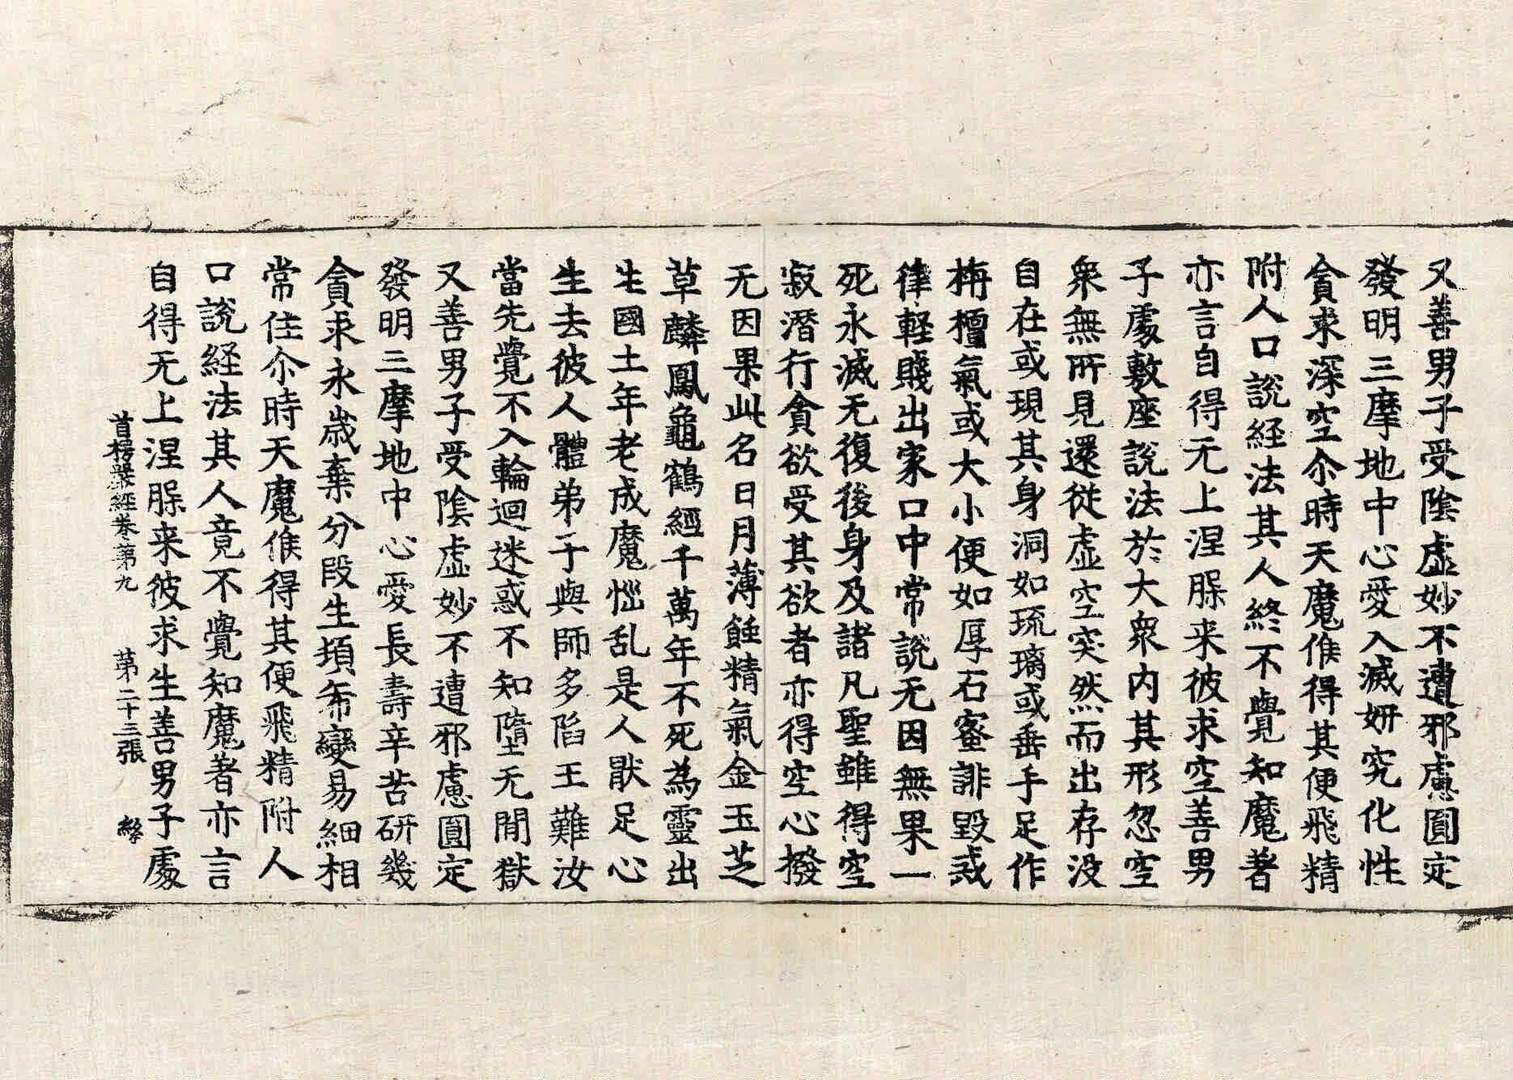 又善男子受陰虛妙不遭邪慮圓定
發明三摩地中心愛入滅妍究化性
貪求深空尒時天魔俟得其便飛精
附人口說経法其人終不覺知魔著
亦言自得无上涅槃来彼求空善男
子處敷座說法於大衆内其形忽空
衆無所見還從虛空突然而出存没
自在或現其身洞如琉璃或垂手足作
栴檀氣或大小便如厚石蜜誹毀戒
律軽賤出家口中常說无因無果一
死永滅无復後身及諸凡聖雖得空
寂潛行貪欲受其欲者亦得空心撥
无因果此名日月薄蝕精氣金玉芝
草麟鳳龜鶴經千萬年不死為靈出
生國土年老成魔惱乱是人猒足心
生去彼人體弟子與師多陷王難汝
當先覺不入輪迴迷惑不知墮无閒獄
又善男子受陰虛妙不遭邪慮圓定
發明三摩地中心愛長壽辛苦研幾
貪求永歳棄分段生頓希變易細相
常住尒時天魔俟得其便飛精附人
口說経法其人竟不覺知魔著亦言
自得无上涅槃来彼求生善男子處
首楞嚴經卷第九 第二十三張